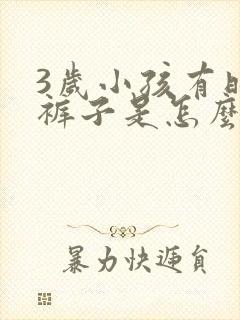 3歲小孩有時
褲子是怎麼
暴力快遞員